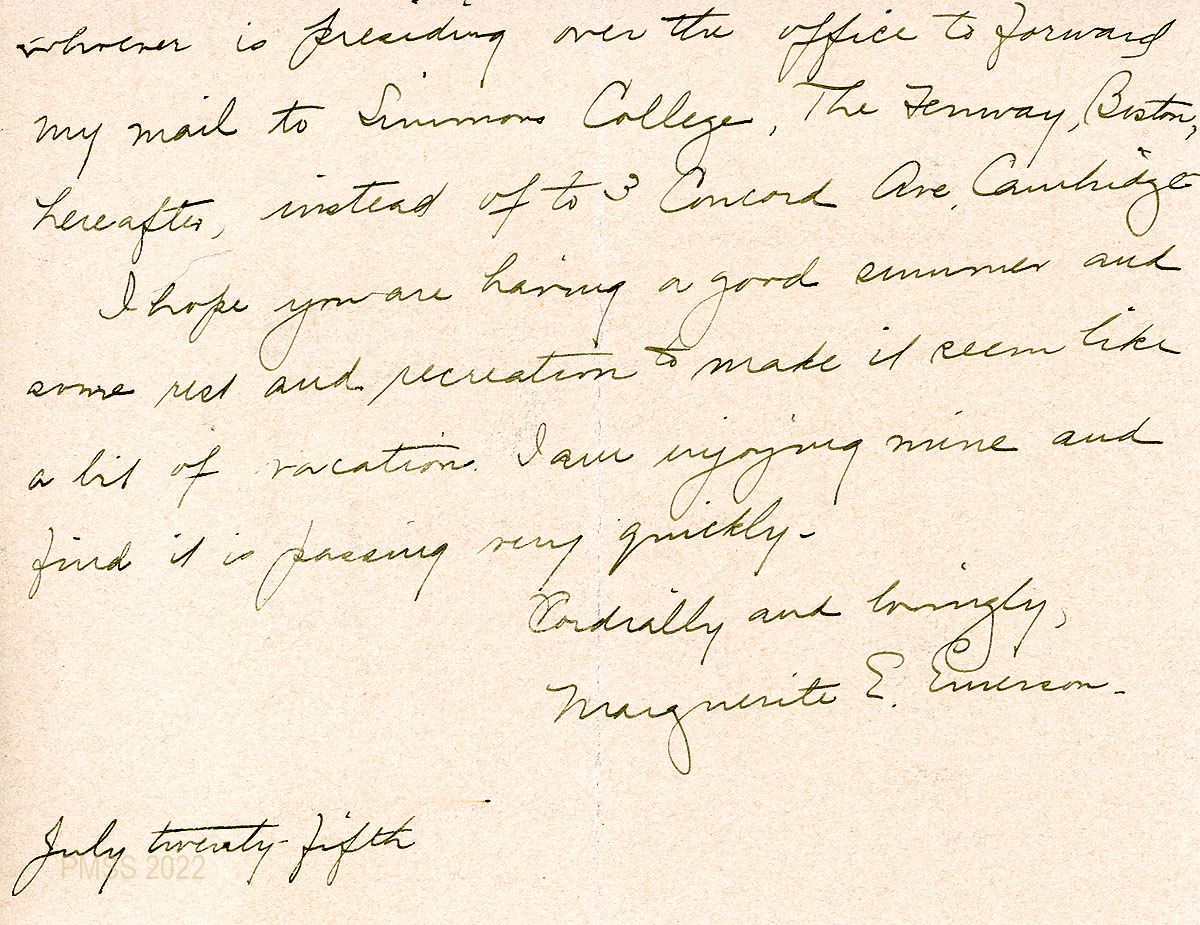 whoever is presiding over the office to forward
my mail to Simmons College, The Fenway, Boston,
hereafter, instead of to 3 Concord Ave. Cambridge
I hope you are having a good summer and
some rest and recreation to make it seem like
a bit of vacation. I am enjoying mine and
find it is passing very quickly.
Cordially and lovingly,
Marguerite E. Emerson.
July twenty-fifth
PMSS 2022